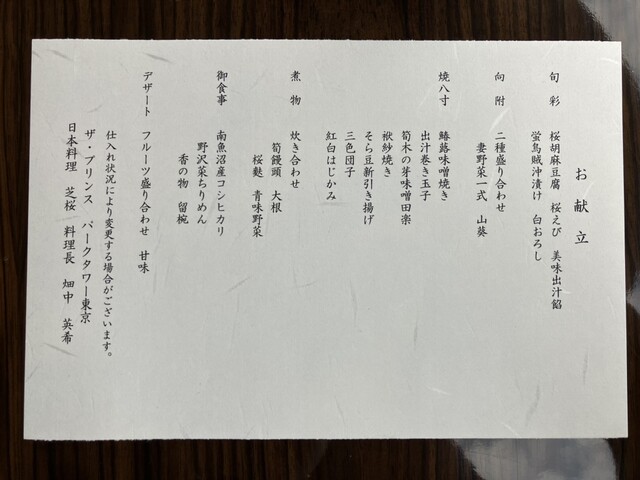 お献立
旬 彩 桜胡麻豆腐 桜えび 美味出汁餡
蛍烏賊沖漬け 白おろし
向 附 二種盛り合わせ
妻野菜一式 山葵
焼八寸 鰆蕗味噌焼き
出汁巻き玉子
筍木の芽味噌田楽
袱紗焼き
そら豆新引き揚げ
三色団子
紅白はじかみ
煮 物 炊き合わせ
筍饅頭 大根
桜麩 青味野菜
御食事 南魚沼産コシヒカリ
野沢菜ちりめん
香の物 留椀
デザート フルーツ盛り合わせ 甘味
仕入れ状況により変更する場合がございます。
ザ・プリンス パークタワー東京
日本料理 芝桜 料理長 畑中 英希